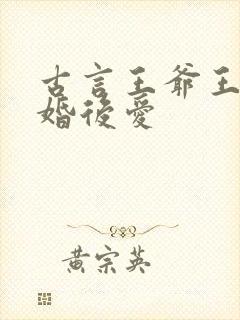 古言王爺王
婚後愛
黄宗英